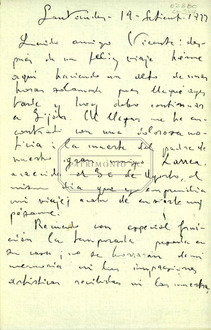 Santander - 19 - Setiembre 1977
Querido amigo Vicente: des-
pués de un feliz viaje héme
aquí haciendo un alto de unas
horas solamente pues llegué ayer
tarde y hoy debo continuar
a Gijón. Al llegar me he en-
contrado con una dolorosa no-
ticia: la muerte del padre de
nuestro gran amigo Larrea
acaecida el 30 de Agosto, el
mismo día que yo emprendía
mi viaje; acabo de enviarle mi
pésame.
Recuerdo con especial frui-
ción la temporada pasada en
su casa; no se borrarán de mi
memoria ni las impresiones
artísticas recibidas ni las nuestras
PATRIMONIO